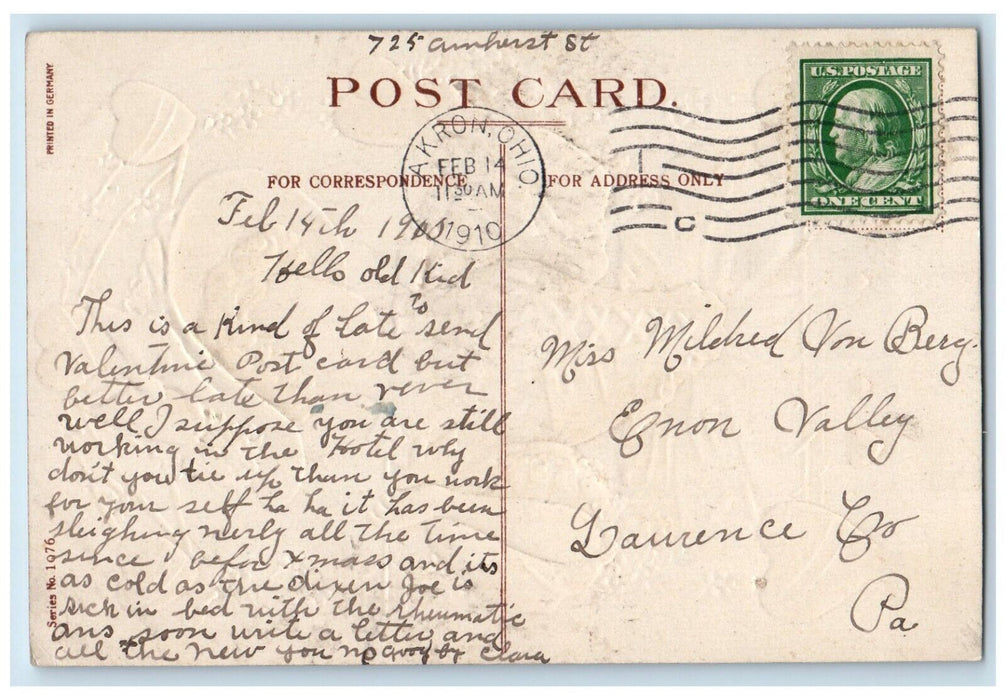 725 Amherst St
POST CARD.
U.S. POSTAGE
ONE CENT
AKRON, OHIO.
FEB 14
11 30 AM
1910
C
PRINTED IN GERMANY
FOR CORRESPONDENCE
FOR ADDRESS ONLY
Feb 14th 1910
Hello old Kid
This is a Kind of late to send
Valentine Post card but
better late than never
well I suppose you are still
working in the Hotel why
don't you tie up than you work
for your self ha ha it has been
sleighing nerly all the time
since befor Xmass and its
as cold as the dixen Joe is
sick in bed with the rheumatic
ans soon write a letter and
all the new you no gooy by Clara
Series No. 1076
Miss Mildred Von Berg.
Enon Valley
Laurence Co
Pa